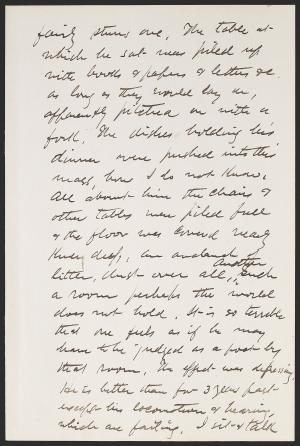 fairly stuns one. The table at
which he sat was piled up
with books & papers & letters &c
as long as they would lay on,
apparently pitched on with a
fork. The dishes holding his
dinner were pushed into this
mass, how I do not know.
All about him the chairs &
other tables were piled full
& the floor was covered nearly
knee deep, an
another
litter, dust over all, such
a room perhaps the world
does not hold. It is so terrible
that one feels as if he may
have to be judged as a poet by
that room. The effect was depressing.
He is better than for 3 years past
except his locomotion & hearing,
which are failing. I sit & talk